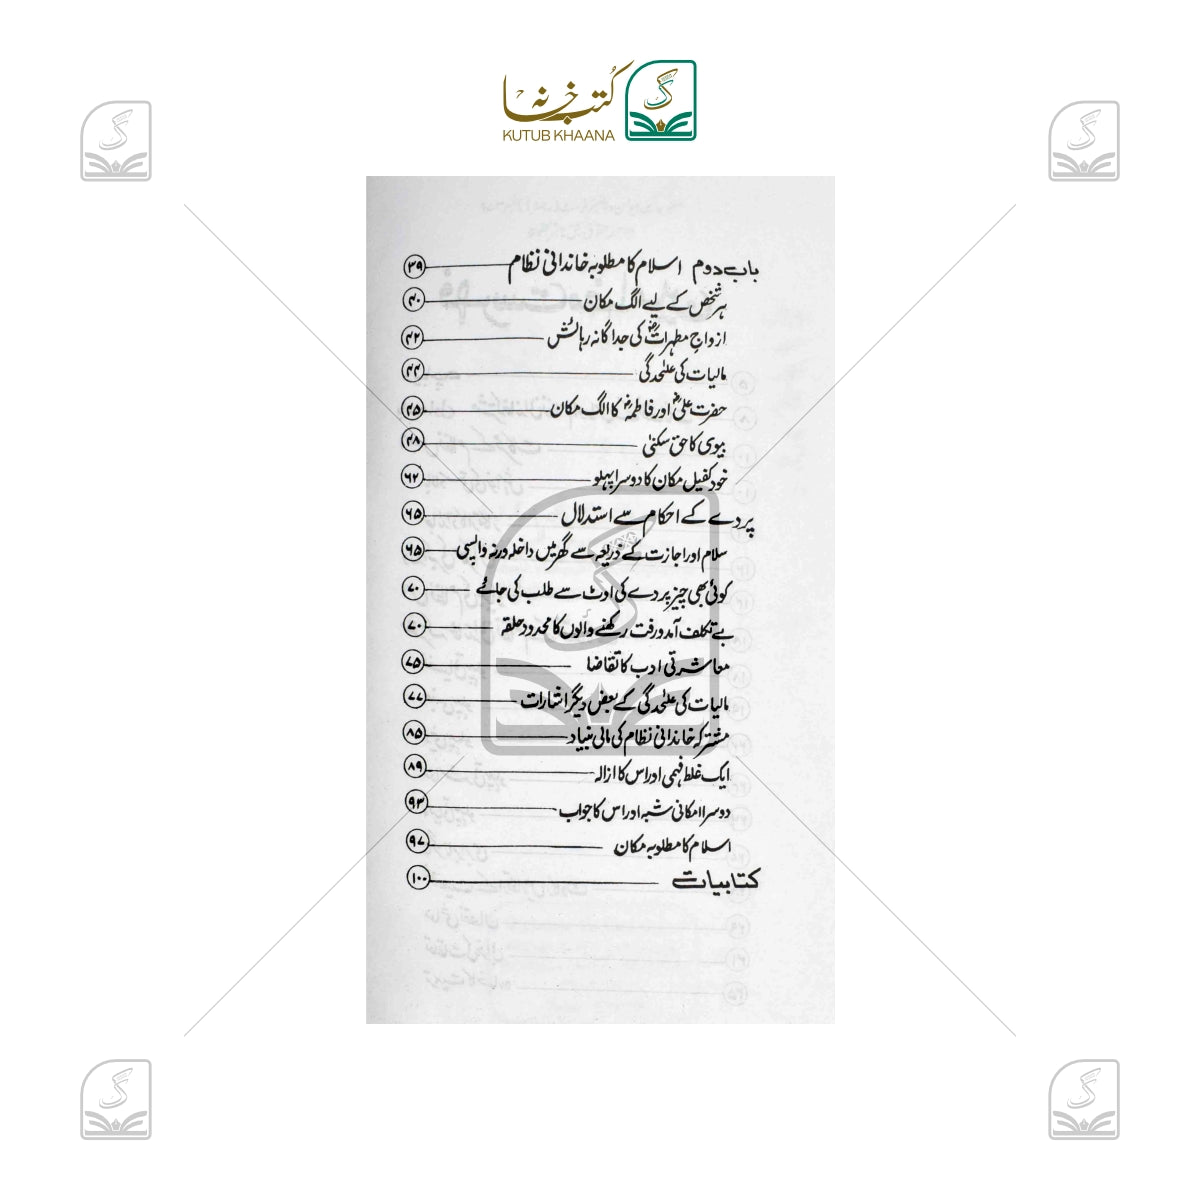 کتب خانہ
KUTUB KHAANA
باب دوم اسلام کا مطلوبہ خاندانی نظام ۳۹
ہر شخص کے لیے الگ مکان ۴۰
ازواجِ مطہراتؓ کی جداگانہ رہائش ۴۲
مالیات کی علٰحدگی ۴۴
حضرت علیؓ اور فاطمہؓ کا الگ مکان ۴۵
بیوی کا حق سکنیٰ ۴۸
خود کفیل مکان کا دوسرا پہلو ۶۲
پردے کے احکام سے استدلال ۶۵
سلام اور اجازت کے ذریعہ سے گھر میں داخلہ ورنہ واپسی ۶۵
کوئی بھی چیز پردے کی اوٹ سے طلب کی جائے ۷۰
بے تکلف آمدورفت رکھنے والوں کا محدود حلقہ ۷۰
معاشرتی ادب کا تقاضا ۷۵
مالیات کی علٰحدگی کے بعض دیگر اشارات ۷۷
مشترکہ خاندانی نظام کی مالی بنیاد ۸۵
ایک غلط فہمی اور اس کا ازالہ ۸۹
دوسرا امکانی شبہ اور اس کا جواب ۹۳
اسلام کا مطلوبہ مکان ۹۷
کتابیات ۱۰۰